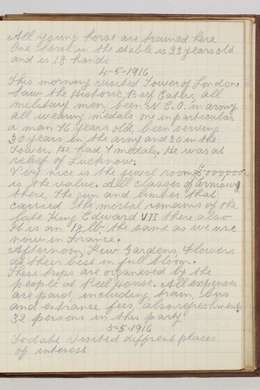 All young horses are trained here
One horse in the stable is 33 years old
and is 18 hands
4-5-1916
This morning visited Tower of London
Saw the Historic Beef Eater, all
military men been N.C.O. in army
all wearing medals one in particular
a man 76 years old, been serving
30 years in the army and 30 in the
Tower. He had 7 medals. He was at
relief of Lucknow.
Very nice is the jewel room £7,000,000
is the value. All classes of armoury
there, The gun and limber that
carried the mortal remains of the
late King Edward VII there also
It is an 18 lb, the same as we use
now in France.
Afternoon Kew Gardens, flowers
at their best in full bloom.
These trips are organised by the
people at Peel House. All expenses
are paid including train, bus
and entrance fees, also refreshments
32 persons in this party
5-5-1916
To date visited different places
of interest